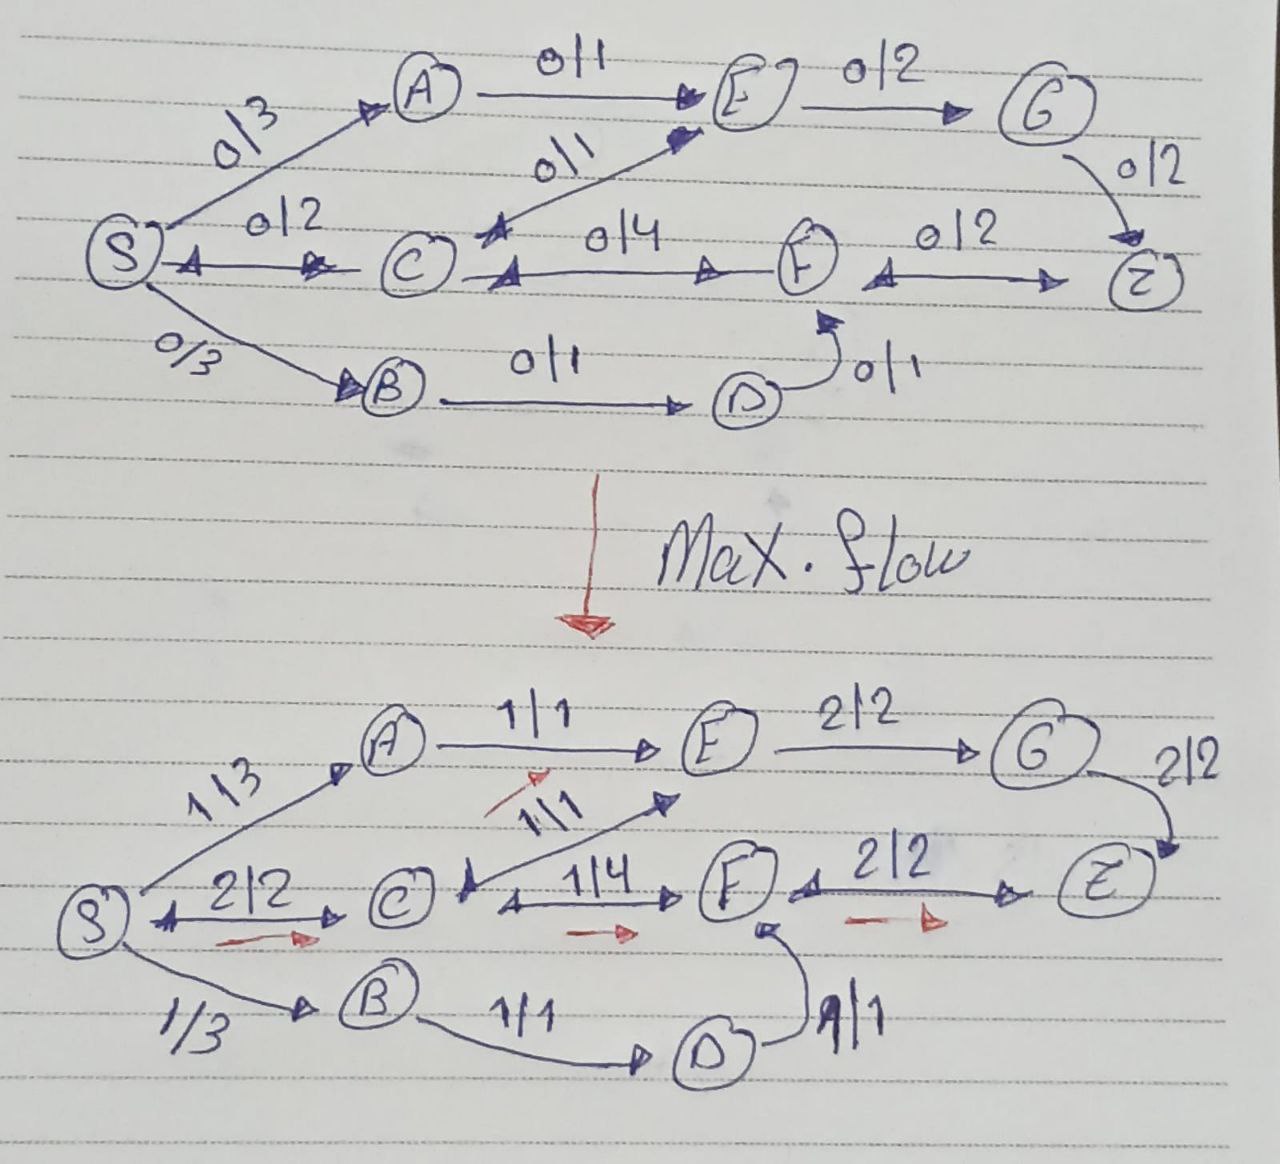 A 0/1 E 0/2 G
0/3 0/1 0/2
S 0/2 C 0/4 F 0/2 Z
0/3 B 0/1 D 0/1
Max. flow
A 1/1 E 2/2 G 2/2
1/3 1/1
S 2/2 C 1/4 F 2/2 Z
1/3 B 1/1 D 1/1